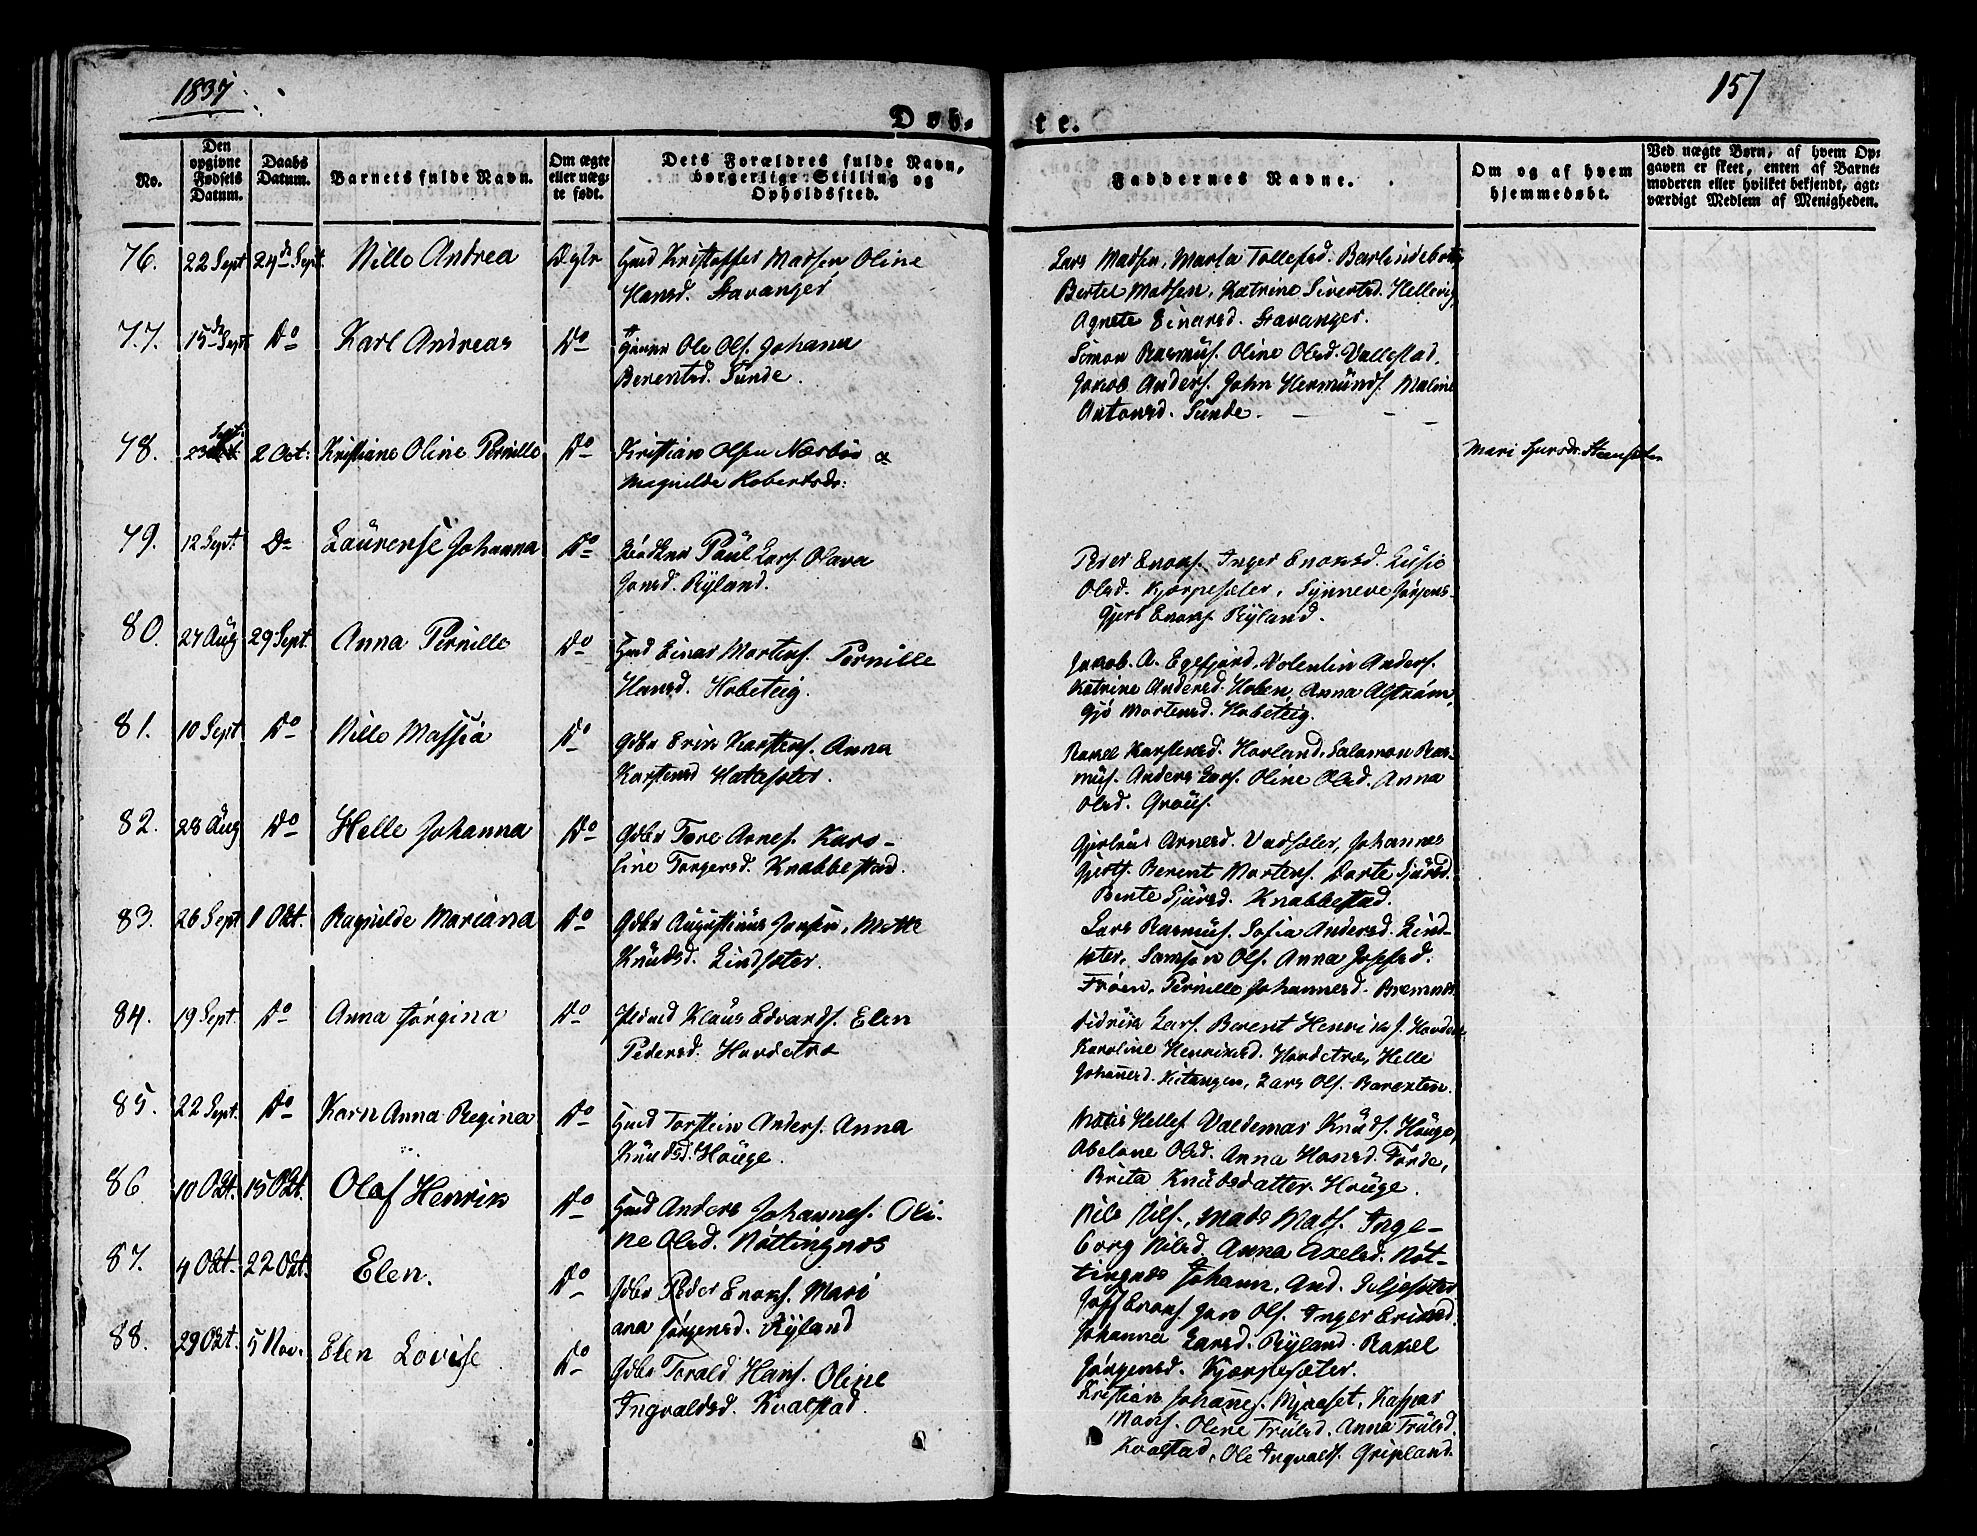 1837
157
Døb-
te.
No.
Den opgivne Fødsels Datum.
Daabs Datum.
Barnets fulde Navn.
Om ægte eller uæg-
te født.
Dets Forældres fulde Navn,
borgerlige Stilling og
Opholdssted.
Faddernes Navne.
Om og af hvem
hjemmedøbt.
Ved uægte Børn, af hvem Op-
gaven er skeet, enten af Barne-
moderen eller hvilket bekjendt, agt-
værdigt Medlem af Menigheden.
76. 22 Sept 24de Sept. Nille Andrea Ægte Hmd Kristoffer Madsen Oline
Hansd. Stavanger
Lars Madsen, Marta Tollefsd. Barlindebotn
Bertel Madsen, Katrine Sivertsd. Hellevig,
Agnete Einarsd. Stavanger.
77. 15de Sept. Do Karl Andreas Do Ole Ols. Johana
Berentsd. Sunde.
Simon Rasmus. Oline Olsd. Vallestad,
Jakob Anders. John Hermunds. Maline
Antonsd. Sunde.
78. 23 Sept: 2 Oct: Kristiane Oline Pernille Do Kristian Olsen Næsbøe &
Magnilde Robertsdr:
Mari Sjursdr. Steensæter
79. 12 Sept. Do Laurense Johanna Do Paul Lars. Olava
Jonsd. Ryland.
Peder Enoks. Inger Enoksd. Lusie
Olsd. Kjørpesæter, Synneve Jørgens-
Gjert Enoks. Ryland.
80. 27 Aug 29 Sept. Anna Pernille Do Hmd Einar Mortens. Pernille
Hansd. Hobeteig.
Jakob. A. Egefjord, Valentin Anders.
Katrine Andersd. Hoben, Anna Alstrøm,
Gjø Mortensd. Hobeteig.
81. 10 Sept Do Nille Massia Do Gdbr Erik Karstens. Anna
Karstensd Hatlesæter.
Rakel Karstensd. Horland, Salamon Ras-
mus. Anders Lars. Oline Olsd. Anna
Olsd. Graus.
82. 28 Aug Do Helle Johanna Do Gdbr Tore Arnes. Karo-
line Torgersd. Knabbestad.
Gjertrud Arnesd. Vadsæter, Johannes
Gjerts. Berent Mortens. Dorte Sjursd.
Bente Sjursd. Knabbestad.
83. 26 Sept 1 Okt. Ragnilde Mariana Do Gdbr Augustinus Jensen, Mette
Knudsd. Lindsæter.
Lars Rasmus. Sofia Andersd. Lind-
sæter, Samson Ols. Anna Josefsd.
Frøen, Pernille Johannesd. Bremnes.
84. 19 Sept. Do Anna Jørgina Do Klaus Edvards. Elen
Pedersd. Hovdetræ
Didrik Lars. Berent Henrik J. Hovdet
Karoline Henriksd. Hovdetræ, Helle
Johannesd. Kitangen, Lars Ols. Barexten.
85. 22 Sept. Do Karn Anna Regina Do Hmd Torstein Anders. Anna
Knudsd. Houge.
Matis Helles. Valdemar Knuds. Houge,
Abelone Olsd. Anna Hansd. Førde,
Brita Knudsdatter Houge.
86. 10 Okt. 15 Okt. Olaf Henrik Do Hmd Anders Johannes. Oli-
ne Olsd. Nøttingnes
Nils Nils., Mads Mads. Inge-
borg Nilsd. Anna Axelsd. Nøt-
tingnes Johann. And. Seljesæter
87. 4 Okt. 22 Okt. Elen. Do Gdbr Peder Enoks. Mari
ana Jørgensd. Ryland
Josf Enoks. Jon Ols. Inger Eriksd.
Johanna Larsd. Ryland Rakel
Jørgensd. Kjørpesæter.
88. 29 Okt. 5 Nov. Elen Lovise Do Gdbr Torald Hans. Oline
Ingvaldsd. Kvalstad.
Kristian Johannes. Myraset, Kasper
Mons. Oline Trulsd. Anna Trulsd.
Kvalstad, Ole Ingvalds. Gripland.